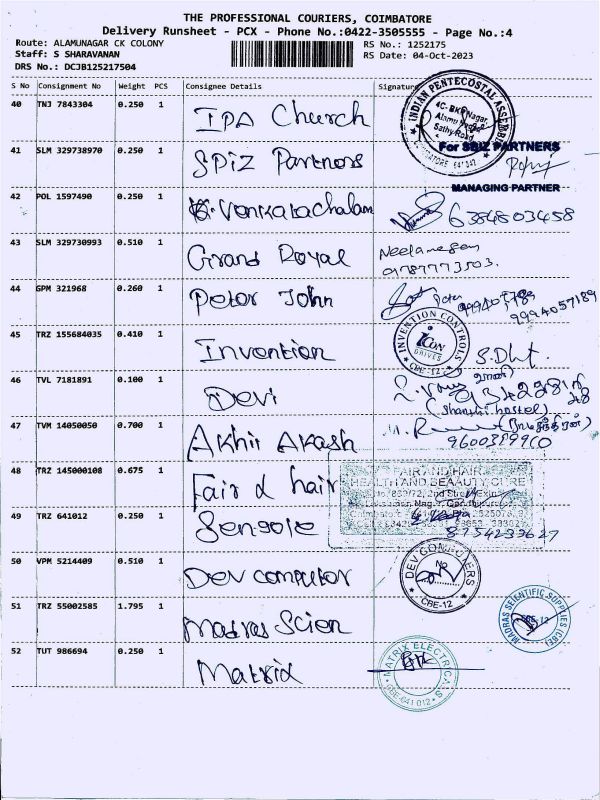 THE PROFESSIONAL COURIERS, COIMBATORE
Delivery Runsheet - PCX - Phone No.:0422-3505555 - Page No.:4
Route: ALAMUNAGAR CK COLONY
RS No.: 1252175
Staff: S SHARAVANAN
RS Date: 04-Oct-2023
DRS No.: DCJB125217504
S No Consignment No Weight PCS Consignee Details Signature
40 TNJ 7843304 0.250 1 IPA Church
INDIAN PENTECOSTAL ASSEMBLY
4C-BKR Nagar,
Alamu Nagar
Sathy Road
COIMBATORE 641 012
41 SLM 329738970 0.250 1 SPiZ Partners
For SBIZ PARTNERS
MANAGING PARTNER
42 POL 1597490 0.250 1 K. Venkatachalam 6384803458
43 SLM 329730993 0.510 1 Grand Royal
Neelamegam
44 GPM 321968 0.260 1 Peter John
Peter
9994057189
45 TRZ 155684035 0.410 1 Invention
INVENTION CONTROLS
iCON
DRIVES
CBE-12
46 TVL 7181891 0.100 1 Devi
(Shanthi hostel)
47 TVM 14050050 0.700 1 Akhil Akash
48 TRZ 145000108 0.675 1 Fair & hair
FAIR AND HAIR
HEALTH AND BEAAUTY CURE
49 TRZ 641012 0.250 1 Sengole
8754233627
50 VPM 5214409 0.510 1 Dev computer
CBE-12
51 TRZ 55002585 1.795 1 Madras Scien
MADRAS SCIENTIFIC SUPPLIES (CBE)
CBE-12
52 TUT 986694 0.250 1 Matrix
MATRIX ELECTRICALS
CBE-641 012